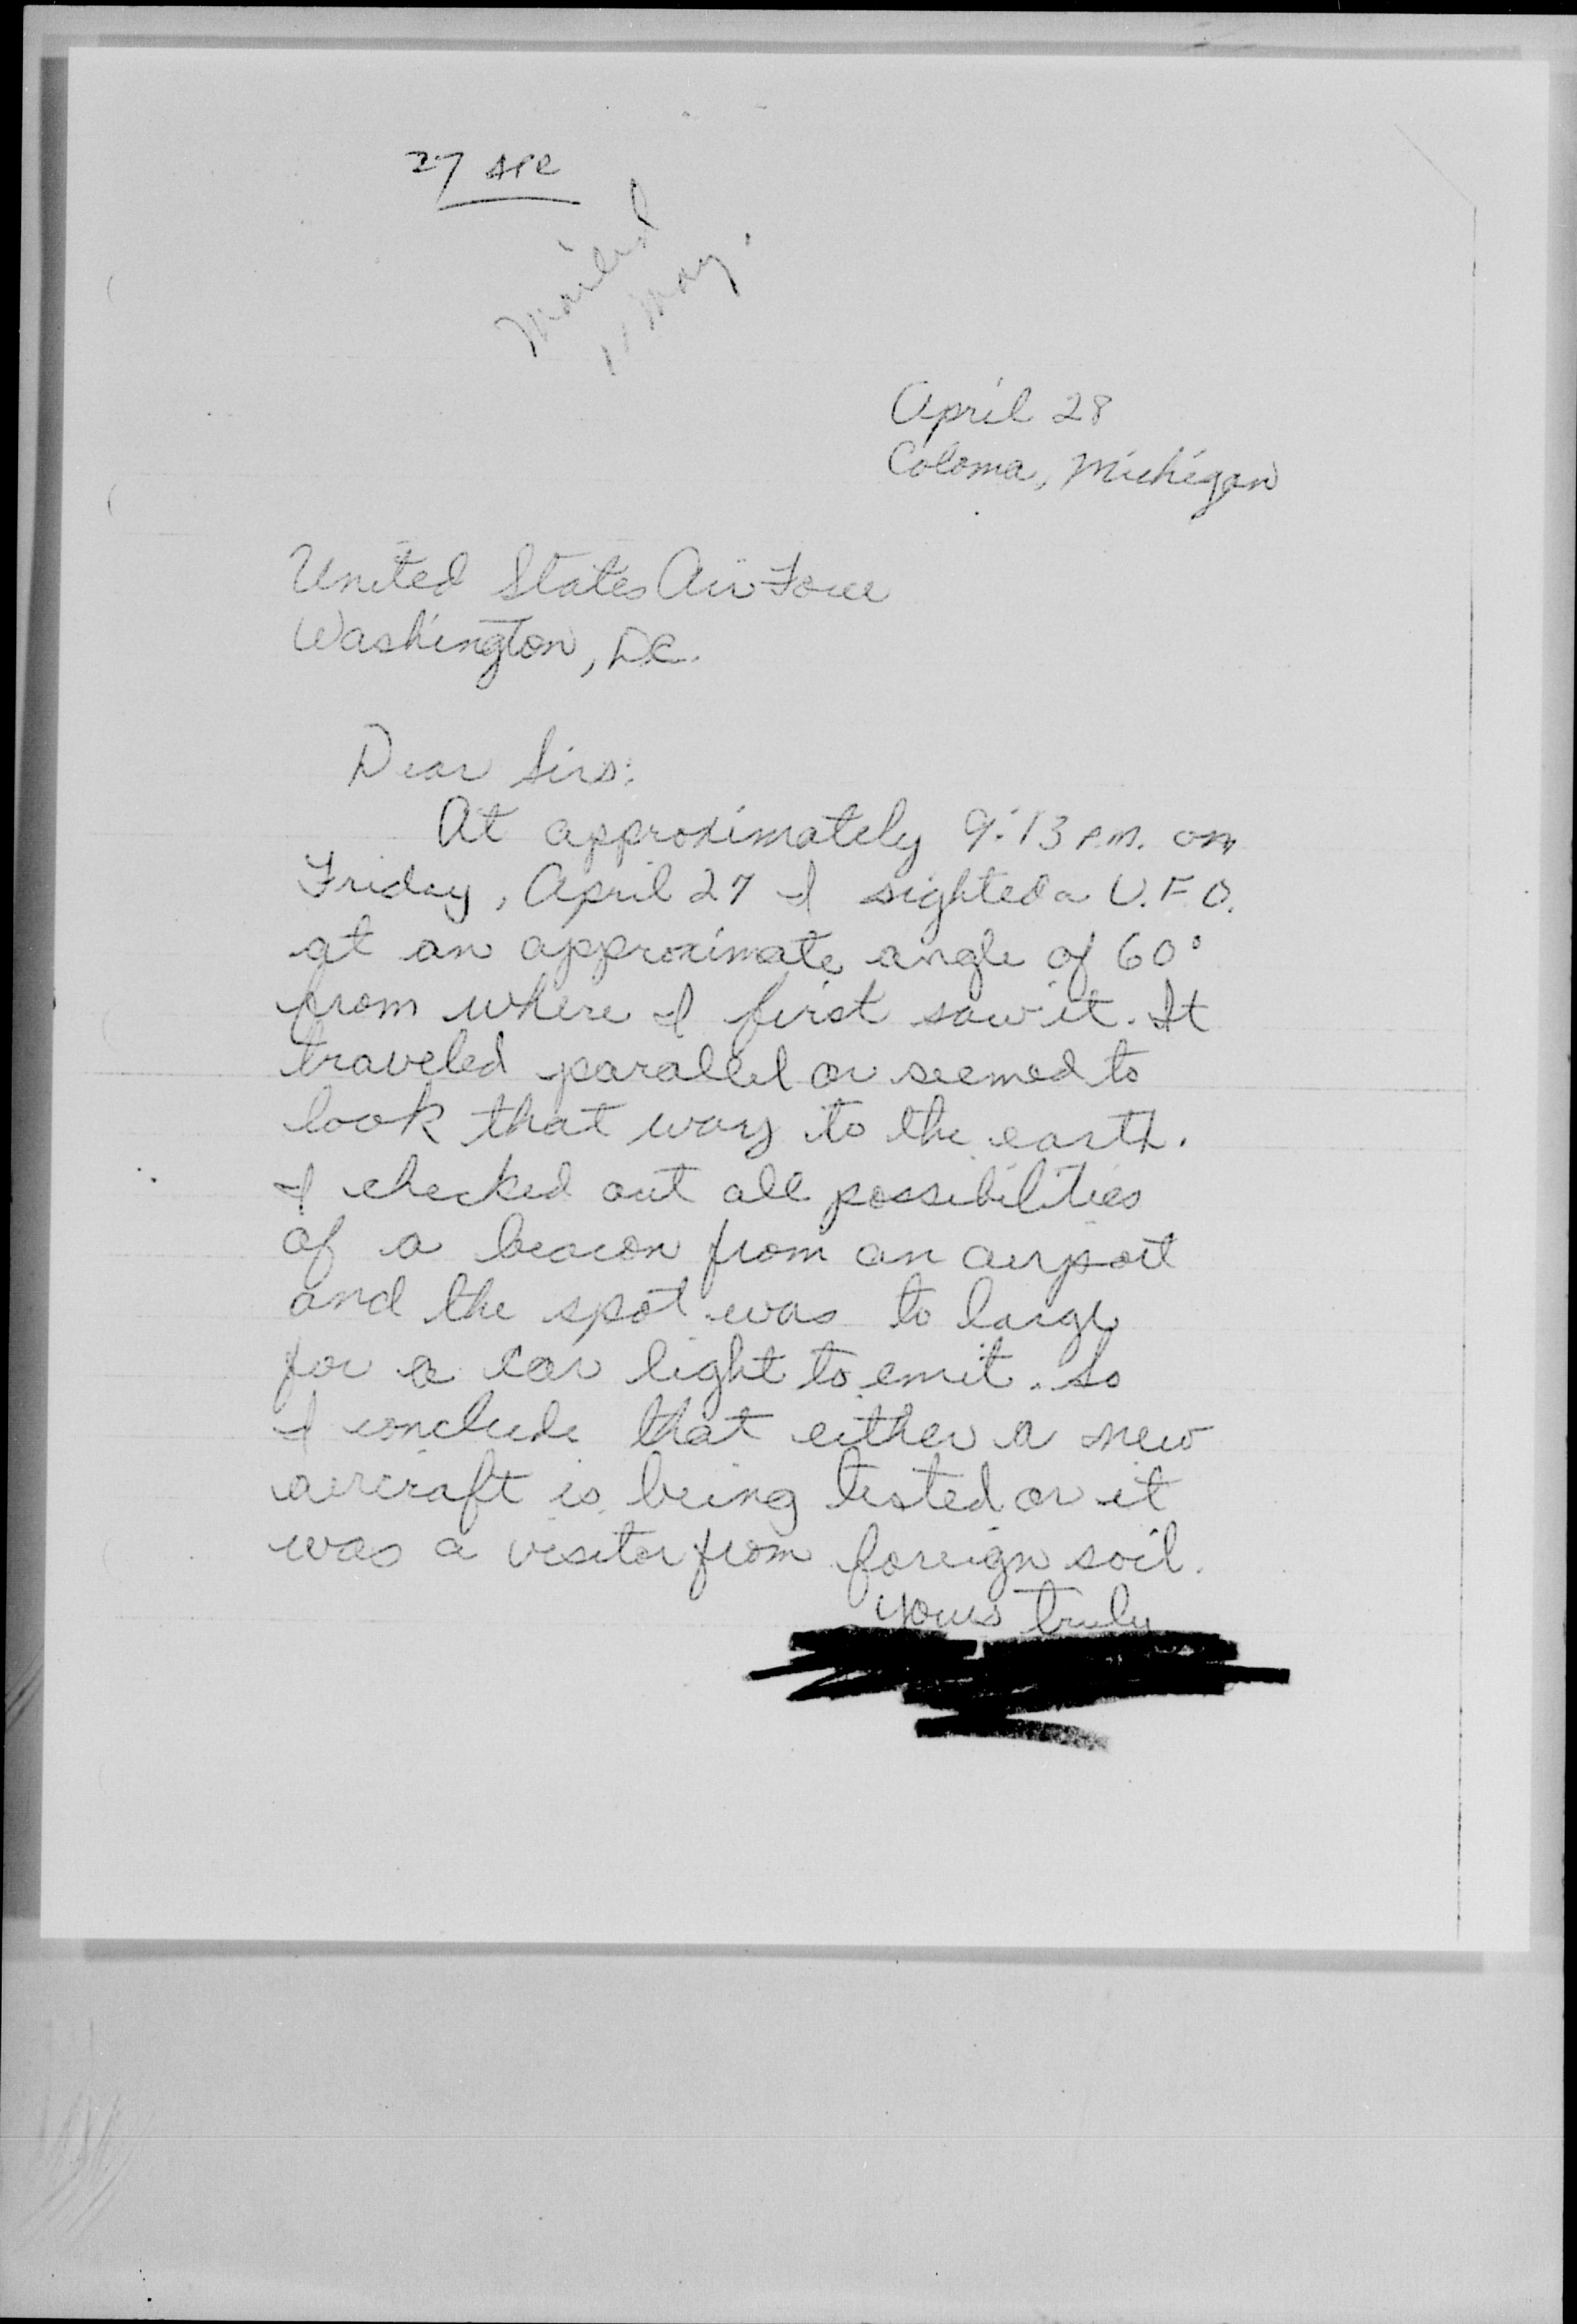 27 APR
Mailed
11 May.
April 28
Coloma, Michigan
United States Air Force
Washington, D.C.
Dear Sirs:
At approximately 9:13 P.M. on
Friday, April 27 I sighted a U.F.O.
at an approximate angle of 60°
from where I first saw it. It
traveled parallel or seemed to
look that way to the earth.
I checked out all possibilities
of a beacon from an airport
and the spot was to large
for a car light to emit. So
I conclude that either a new
aircraft is being tested or it
was a visitor from foreign soil.
Yours truly